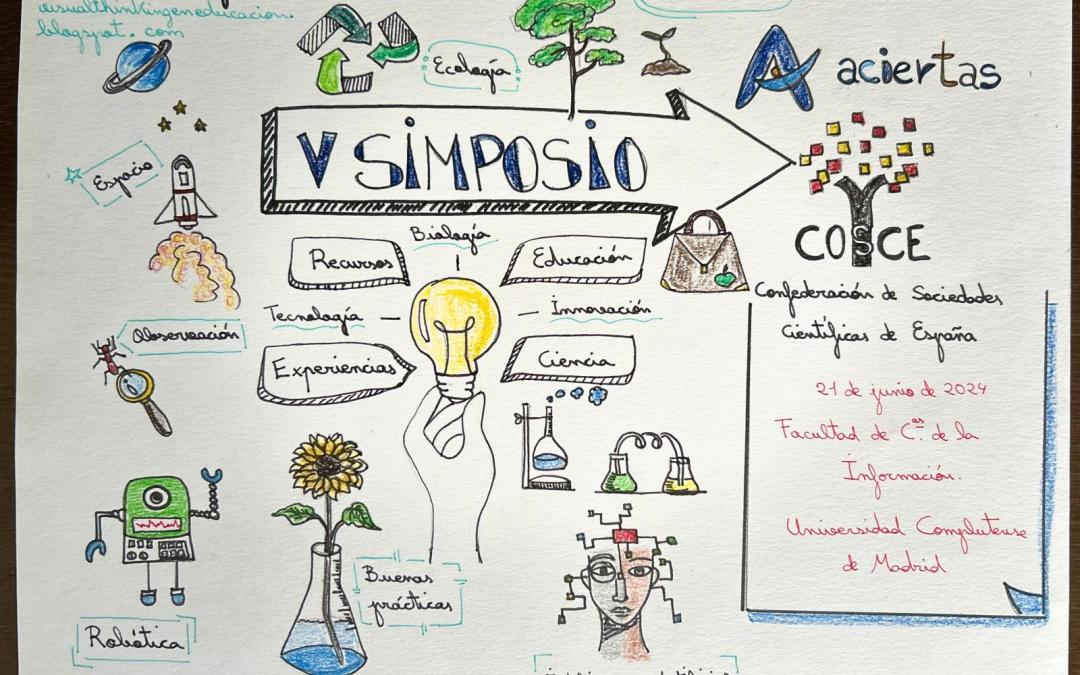 visualthinkingeneducacion.
blogspot.com
Ecología
aciertas
V SIMPOSIO
Espacio
COSCE
Confederación de Sociedades
Científicas de España
Biología
Recursos
Educación
Tecnología
Innovación
Observación
Experiencias
Ciencia
21 de junio de 2024
Facultad de C.as de la
Información.
Universidad Complutense
de Madrid
Buenas
prácticas
Robótica